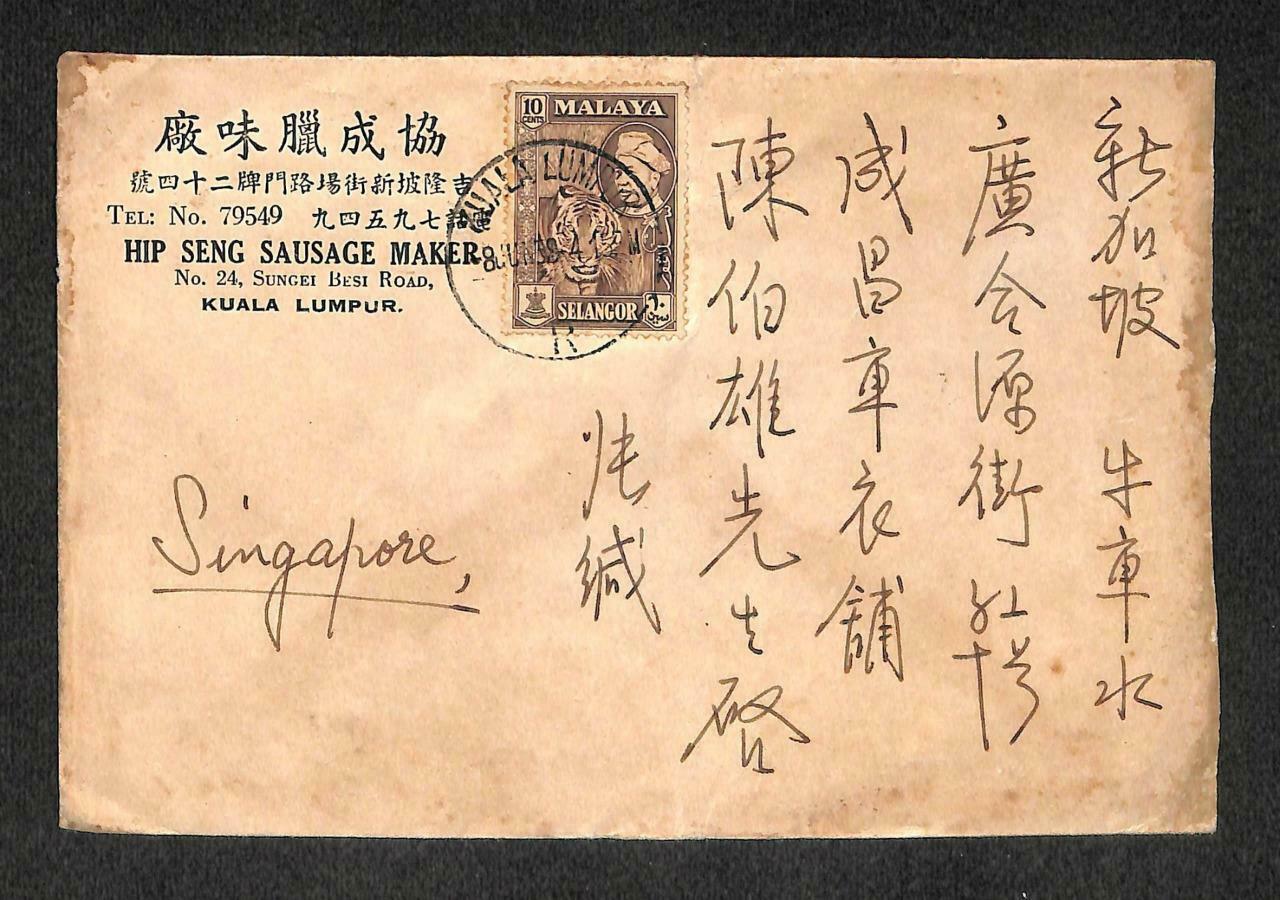 協成臘味廠
吉隆坡新街場路門牌二十四號
TEL: No. 79549 電話七九五四九
HIP SENG SAUSAGE MAKER
No. 24, SUNGEI BESI ROAD,
KUALA LUMPUR.
10 CENTS
MALAYA
SELANGOR
KUALA LUMPUR
新加坡 牛車水
廣合源街 十号
成昌車衣舖
陳伯雄先生啓
張緘
Singapore,